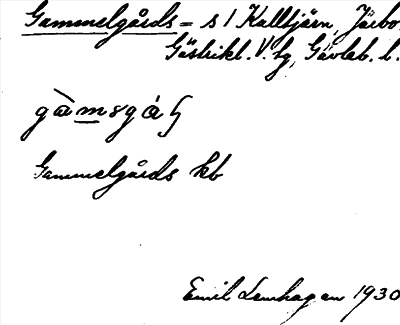 Gammelgårds = s/ Kalltjärn, Järbo
Gästrikl. V. tg, Gävleb. l.
gàmsgáɧ
Gammelgårds kb
Emil Lenhagen 1930